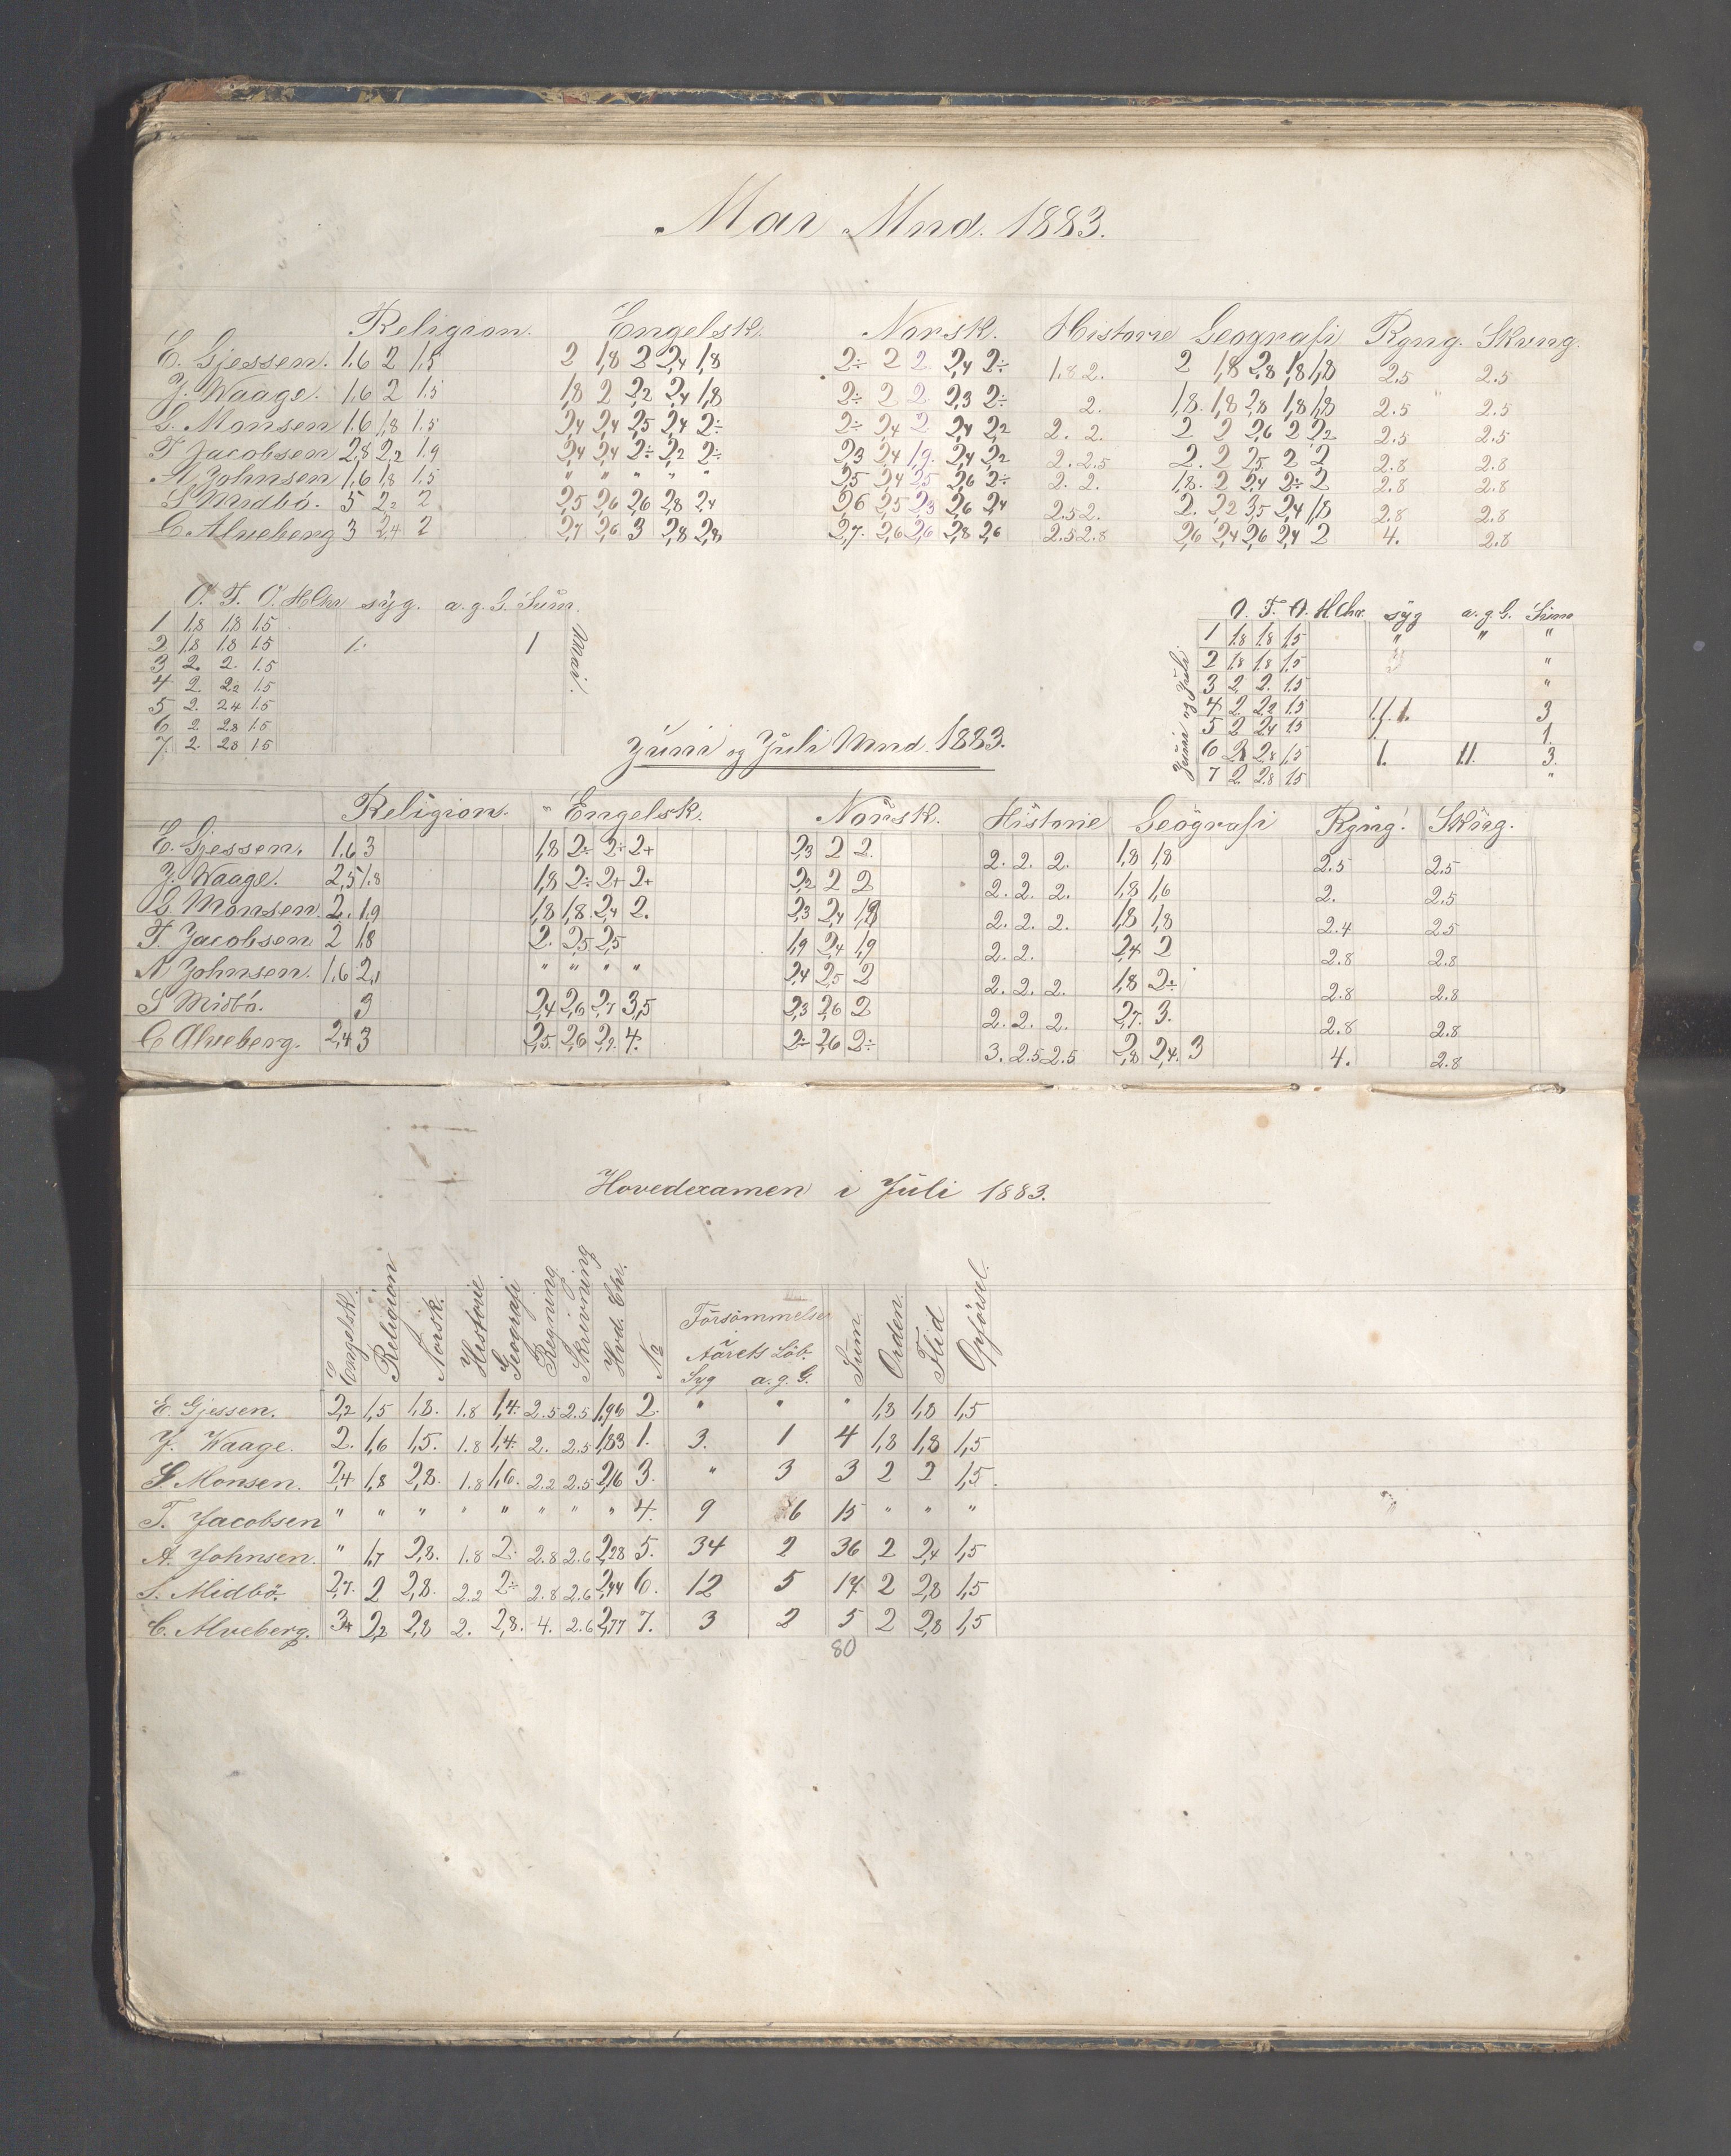 Mai Mnd. 1883.
Religion. Engelsk. Norsk. Historie Geografi Rgng. Skvng.
E. Gjessen. 1.6 2 1,5 2 1,8 2 2,4 1,8 2÷ 2 2 2,4 2÷ 1.8 2. 2 1,8 2,8 1,8 1,8 2.5 2.5
J. Waage. 1,6 2 1.5 1,8 2 2,2 2,4 1,8 2÷ 2 2 2,3 2÷ 2. 1,8. 1,8 2,8 1,8 1,8 2.5 2.5
S. Monsen 1.6 1,8 1.5 2,4 2,4 2,5 2,4 2÷ 2÷ 2,4 2 2,4 2,2 2. 2. 2 2 2,6 2 2,2 2.5 2.5
T Jacobsen 2,8 2,2 1.9 2,4 2,4 2÷ 2,2 2÷ 2,3 2,4 1,9. 2,4 2,2 2. 2.5 2. 2 2,5. 2 2 2.8 2.8
A Johnsen 1,6 1,8 1,5 " " " " " 2,5 2,4 2,5 2,6 2÷ 2. 2. 1,8. 2 2,4 2÷ 2 2.8 2.8
S Midbö. 5 2,2 2 2,5 2,6 2,6 2,8 2,4 2,6 2,5 2,3 2,6 2,4 2.5 2. 2. 2,2 3,5 2,4 1,8 2.8 2.8
C. Alveberg 3 2,4 2 2,7 2,6 3 2,8 2,8 2,7. 2,6 2,6 2,8 2,6 2.5 2.8 2,6 2,4 2,6 2,4 2 4. 2.8
O. F. O. HChr syg. a. g. G. Sum.
1 1.8 1.8 1.5
2 1.8 1.8 1.5 1. 1
3 2. 2. 1.5
4 2. 2.2 1.5
5 2. 2.4 1.5
6 2 2.8 1.5
7. 2. 2.8 1.5
Mai.
O. F. O. H.Chr. syg a. g. G. Sum
1 1.8 1.8 1.5 " " "
2 1.8 1.8 1.5 "
3 2 2. 1.5 "
4 2. 2.2 1.5 1. 1. 1. 3
5 2 2.4 1.5 1. 1.
6 2 2.8 1,5 1. 1.1. 3.
7 2. 2.8 1.5 "
Juni og Juli
Juni og Juli Mnd. 1883.
Religion. Engelsk. Norsk. Historie Geografi Rgng. Skvng.
E. Gjessen. 1.6 3 1,8 2÷ 2÷ 2+ 2,3 2 2. 2. 2. 2. 1,8 1,8 2.5 2.5
J. Waage. 2,5 1.8 1,8 2÷ 2+ 2+ 2,2 2 2 2. 2. 2. 1,8 1,6 2. 2.5
S. Monsen. 2. 1,9 1,8 1,8. 2,4 2. 2,3 2,4 1,8 2. 2. 2. 1,8 1,8 2.4 2.5
T. Jacobsen 2 1,8 2. 2,5 2,5 1,9 2,4 1,9 2. 2. 2,4 2 2.8 2.8
A Johnsen. 1,6 2,1 " " " " 2,4 2,5 2 2. 2. 2. 1,8 2÷ 2.8 2.8
S Midbö. 3 2,4 2,6 2,7 3,5 2,3 2,6 2 2. 2. 2. 2,7. 3. 2.8 2.8
C Alveberg. 2,4 3 2,5. 2,6 2,9. 4. 2÷ 2,6 2÷ 3. 2.5 2.5 2,8 2,4. 3 4. 2.8
Hovedexamen i Juli 1883.
Engelsk. Religion Norsk. Historie Geografi Regning. Skrivning Hvd. Chr. No Försömmelser i Aårets Löb. Syg a. g. G. Sum Orden. Flid Opförsel.
E. Gjessen. 2,2 1,5 1,8. 1.8 1,4. 2.5 2.5 1,96 2. " " " 1,8 1,8 1,5
J. Waage. 2. 1,6 1,5. 1.8 1,4. 2. 2.5 1,83 1. 3. 1 4 1,8 1,8 1,5
S Monsen. 2,4 1,8 2,8. 1.8 1,6. 2.2 2.5 2,16 3. " 3 3 2 2 1,5.
T. Jacobsen " " " " " " " " 4. 9 6 15 " " "
A. Johnsen. " 1,7 2,8. 1.8 2. 2.8 2.6 2,28 5. 34 2 36 2 2,4 1,5
S. Midbö. 2,7. 2 2,8. 2.2 2÷ 2.8 2.6 2,44 6. 12 5 17. 2 2,8 1,5
C. Alveberg. 3+ 2,2 2,8 2. 2,8. 4. 2.6 2,77 7. 3 2 5 2 2,8 1,5
80